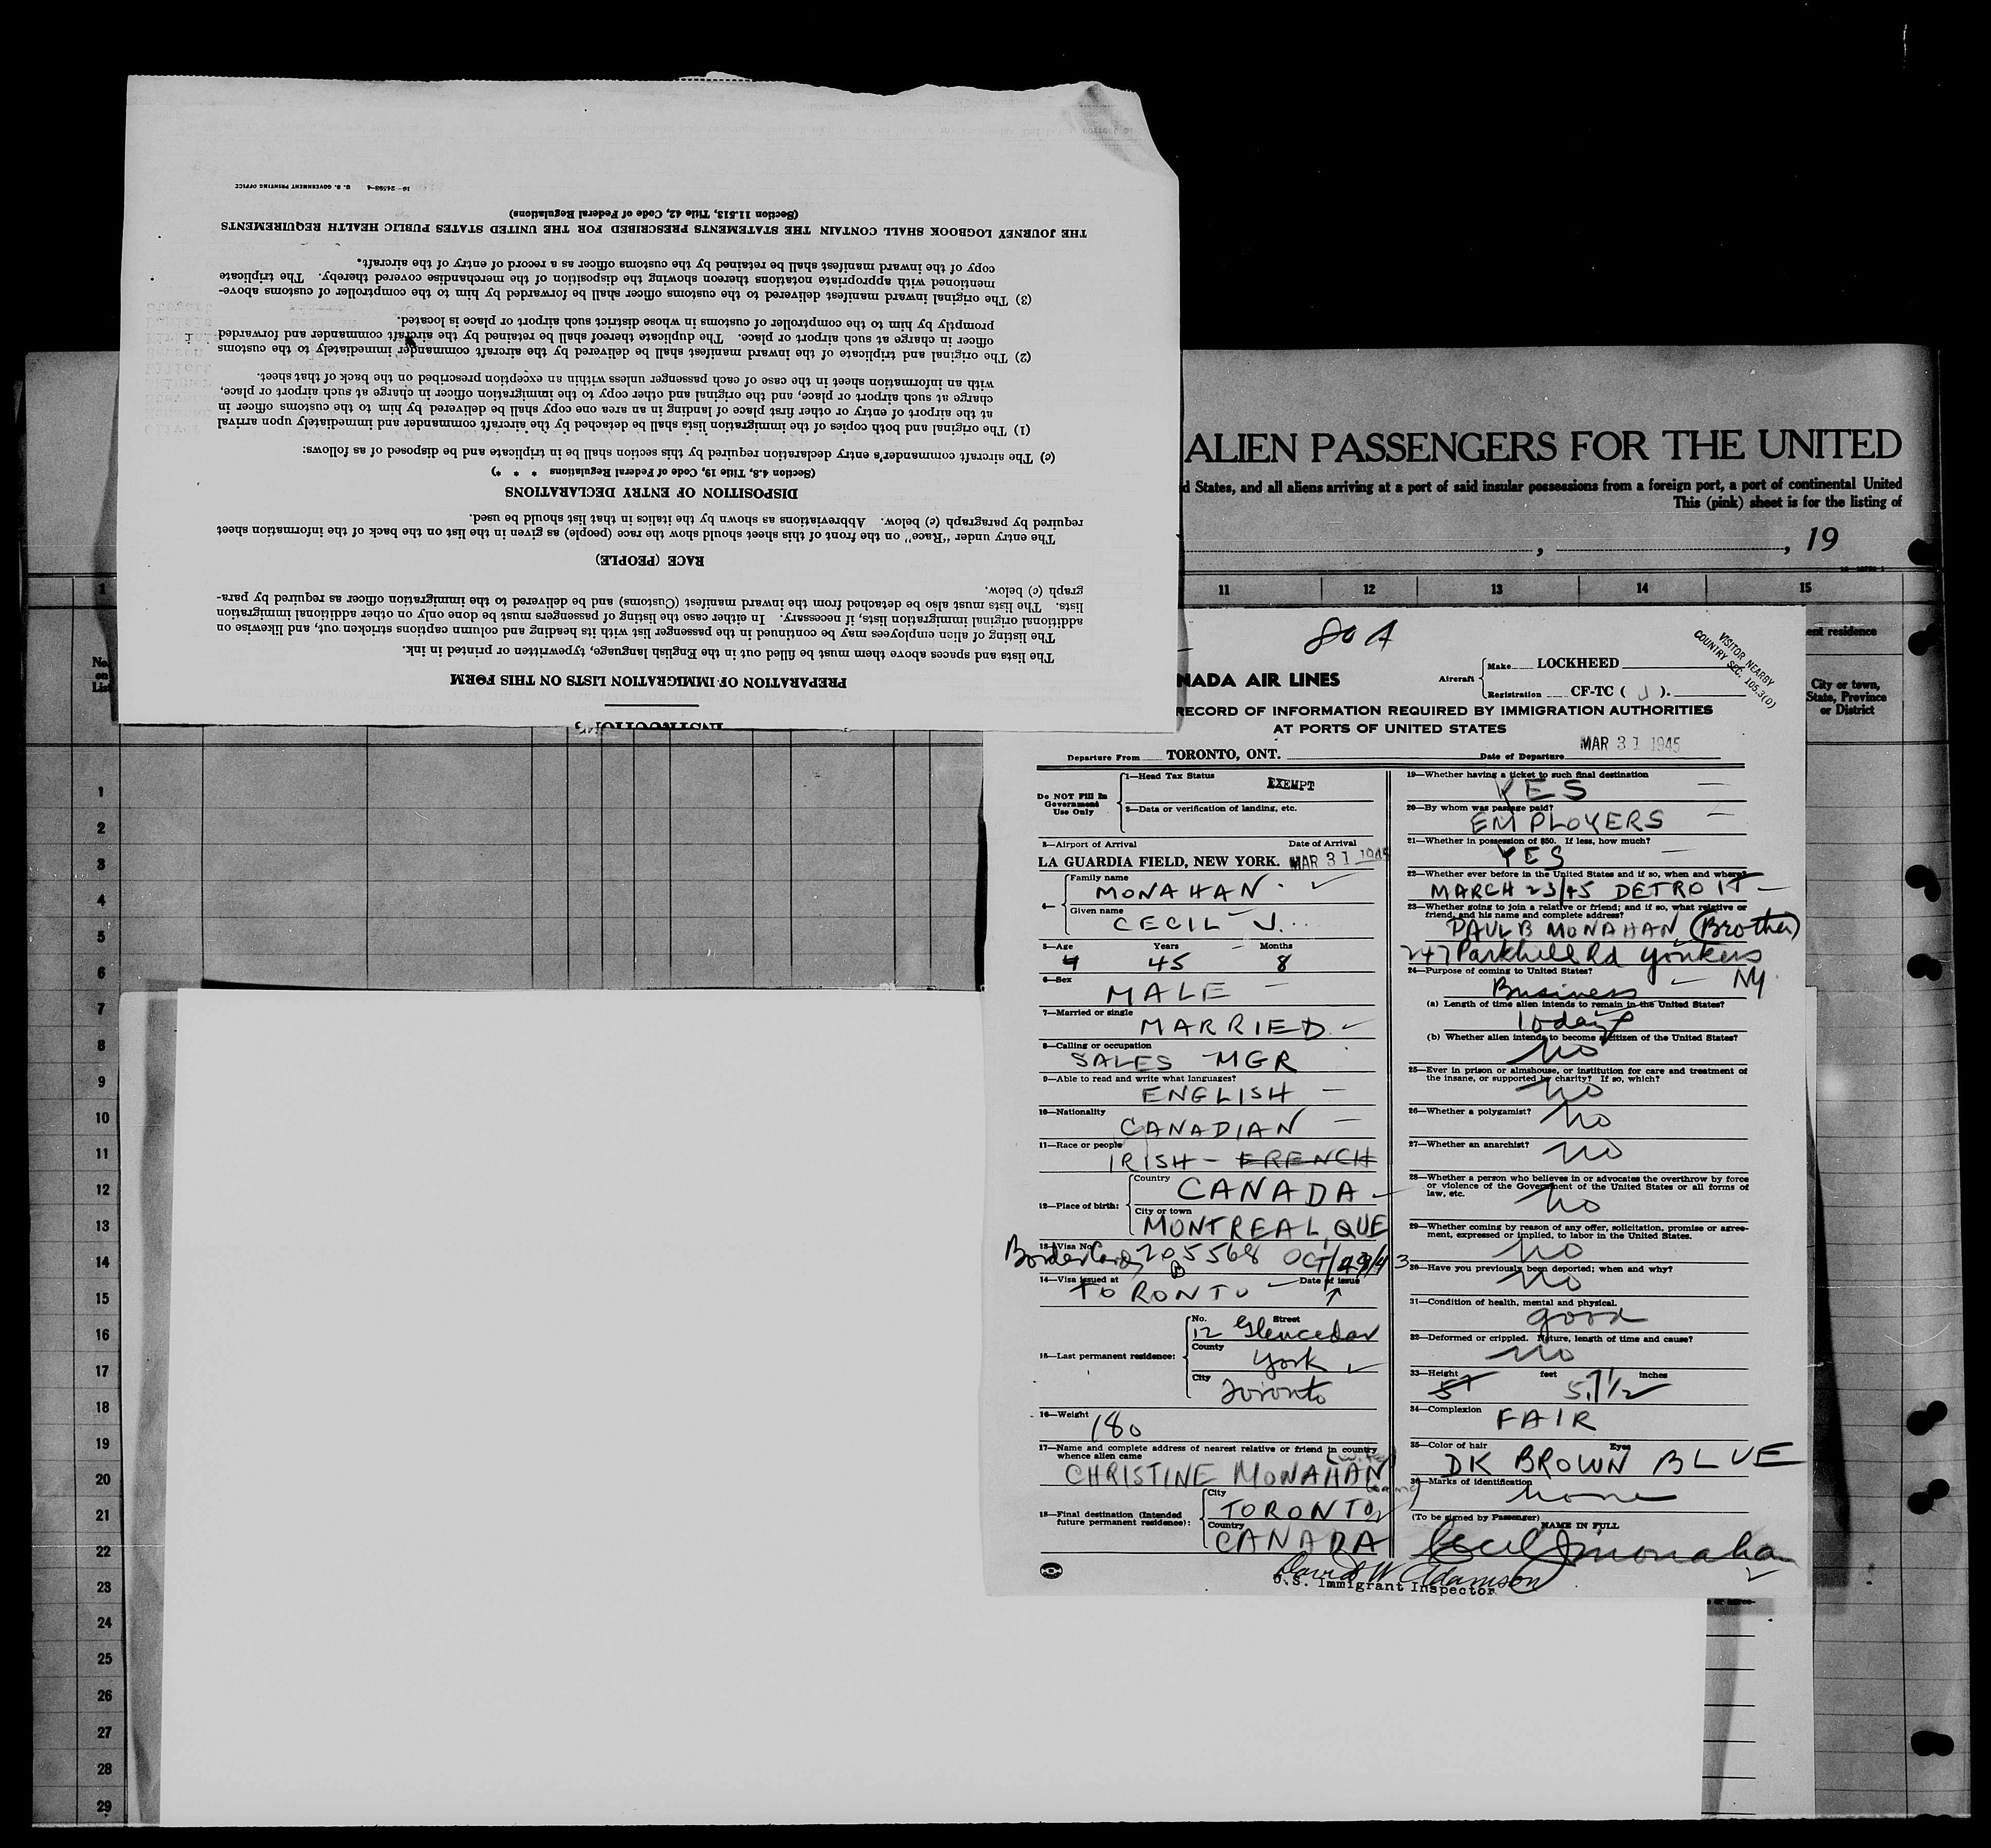 INSTRUCTIONS
PREPARATION OF IMMIGRATION LISTS ON THIS FORM
The lists and spaces above them must be filled out in the English language, typewritten or printed in ink.
The listing of alien employees may be continued in the passenger list with its heading and column captions stricken out, and likewise on
additional original immigration lists, if necessary. In either case the listing of passengers must be done only on other additional immigration
lists. The lists must also be detached from the inward manifest (Customs) and be delivered to the immigration officer as required by para-
graph (c) below.
RACE (PEOPLE)
The entry under "Race" on the front of this sheet should show the race (people) as given in the list on the back of the information sheet
required by paragraph (c) below. Abbreviations as shown by the italics in that list should be used.
DISPOSITION OF ENTRY DECLARATIONS
(Section 4.8, Title 19, Code of Federal Regulations * * *)
(c) The aircraft commander's entry declaration required by this section shall be in triplicate and be disposed of as follows:
(1) The original and both copies of the immigration lists shall be detached by the aircraft commander and immediately upon arrival
at the airport of entry or other first place of landing in an area one copy shall be delivered by him to the customs officer in
charge at such airport or place, and the original and other copy to the immigration officer in charge at such airport or place,
with an information sheet in the case of each passenger unless within an exception prescribed on the back of that sheet.
(2) The original and triplicate of the inward manifest shall be delivered by the aircraft commander immediately to the customs
officer in charge at such airport or place. The duplicate thereof shall be retained by the aircraft commander and forwarded
promptly by him to the comptroller of customs in whose district such airport or place is located.
(3) The original inward manifest delivered to the customs officer shall be forwarded by him to the comptroller of customs above-
mentioned with appropriate notations thereon showing the disposition of the merchandise covered thereby. The triplicate
copy of the inward manifest shall be retained by the customs officer as a record of entry of the aircraft.
THE JOURNEY LOGBOOK SHALL CONTAIN THE STATEMENTS PRESCRIBED FOR THE UNITED STATES PUBLIC HEALTH REQUIREMENTS
(Section 11.513, Title 42, Code of Federal Regulations)
16—24598-4 U. S. GOVERNMENT PRINTING OFFICE
ALIEN PASSENGERS FOR THE UNITED
d States, and all aliens arriving at a port of said insular possessions from a foreign port, a port of continental United
This (pink) sheet is for the listing of
, , 19
1 11 12 13 14 15
No. on List
ent residence
City or town, State, Province or District
80 A
VISITOR NEARBY
COUNTRY SEC. 105.3(0)
NADA AIR LINES
Aircraft Make LOCKHEED
Registration CF-TC ( J ).
RECORD OF INFORMATION REQUIRED BY IMMIGRATION AUTHORITIES
AT PORTS OF UNITED STATES
Departure From TORONTO, ONT. Date of Departure MAR 31 1945
Do NOT Fill In Government Use Only
1—Head Tax Status EXEMPT
2—Data or verification of landing, etc.
3—Airport of Arrival Date of Arrival
LA GUARDIA FIELD, NEW YORK. MAR 31 1945
4— Family name MONAHAN
Given name CECIL J.
5—Age Years 45 Months 8
6—Sex MALE
7—Married or single MARRIED
8—Calling or occupation SALES MGR
9—Able to read and write what languages? ENGLISH
10—Nationality CANADIAN
11—Race or people IRISH - FRENCH
12—Place of birth: Country CANADA
City or town MONTREAL, QUE
13—Visa No. Border Card 205568 OCT/29/43
14—Visa issued at TORONTO Date of issue
15—Last permanent residence: No. Street 12 Glencedar
County York
City Toronto
16—Weight 180
17—Name and complete address of nearest relative or friend in country
whence alien came (wife)
CHRISTINE MONAHAN
18—Final destination (Intended future permanent residence): City TORONTO
Country CANADA
19—Whether having a ticket to such final destination
YES
20—By whom was passage paid?
EMPLOYERS
21—Whether in possession of $50. If less, how much?
YES
22—Whether ever before in the United States and if so, when and where?
MARCH 23/45 DETROIT
23—Whether going to join a relative or friend; and if so, what relative or
friend, and his name and complete address?
PAUL B MONAHAN (Brother)
247 Parkhill Rd Yonkers
NY.
24—Purpose of coming to United States?
Business
(a) Length of time alien intends to remain in the United States?
10 days
(b) Whether alien intends to become a citizen of the United States?
No
25—Ever in prison or almshouse, or institution for care and treatment of
the insane, or supported by charity? If so, which?
No
26—Whether a polygamist? No
27—Whether an anarchist? No
28—Whether a person who believes in or advocates the overthrow by force
or violence of the Government of the United States or all forms of
law, etc. No
29—Whether coming by reason of any offer, solicitation, promise or agree-
ment, expressed or implied, to labor in the United States.
No
30—Have you previously been deported; when and why?
No
31—Condition of health, mental and physical.
good
32—Deformed or crippled. Nature, length of time and cause?
no
33—Height feet 5.7 1/2 inches
34—Complexion FAIR
35—Color of hair DK BROWN Eyes BLUE
36—Marks of identification none
(To be signed by Passenger) NAME IN FULL
Cecil J Monahan
David W Adamson
U.S. Immigrant Inspector
1
2
3
4
5
6
7
8
9
10
11
12
13
14
15
16
17
18
19
20
21
22
23
24
25
26
27
28
29